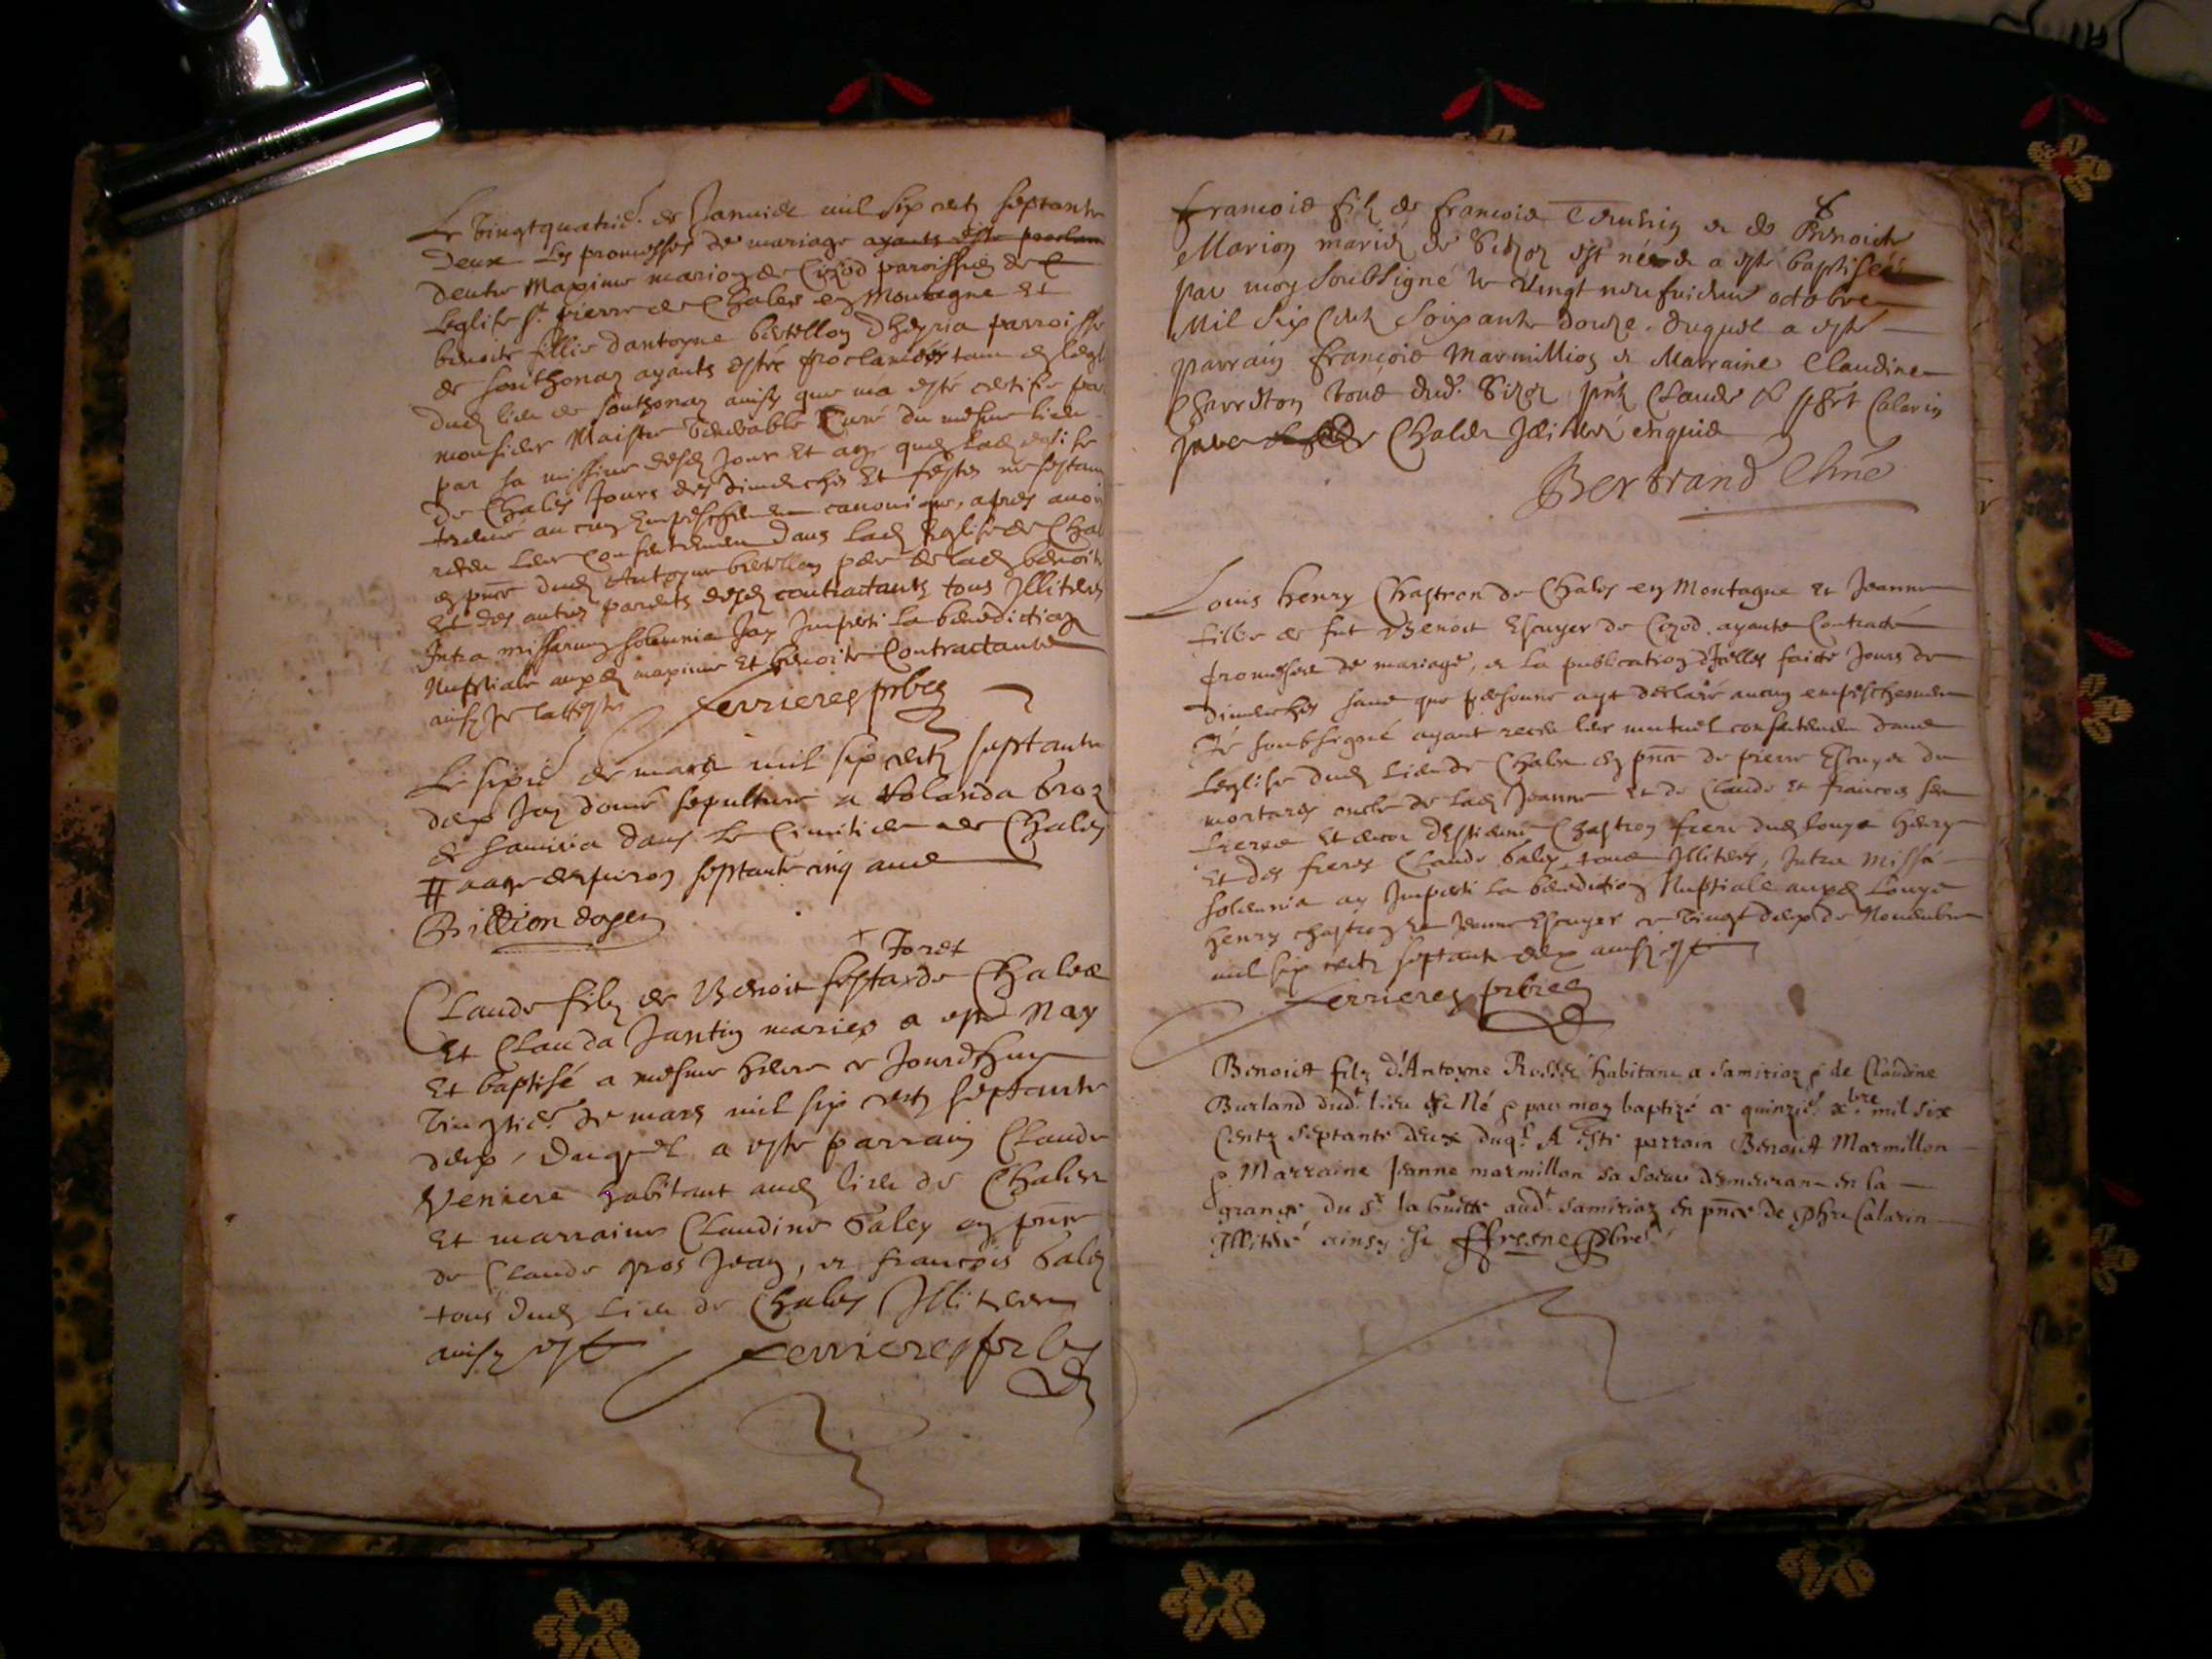 Le vingtquatrie. de Janvier mil six cents septante
deux Les promesses de mariage ayants esté proclam
dentre Maxime marion de Cizod paroissien de
Leglise st pierre de Chales en Montagne Et
benoite fillie dantoyne bertellon dheyria parroisse
de Southonaz ayants estré proclamées tam en legl
dud lieu de Southonaz ainsy que ma esté certifié par
monsieur Maistre Curé du mesme lieu
par sa missive desd Jour Et an que lad eglise
de Chales Jours des dimenches Et festes ne sestan
treuvé aucung Empeschemen canonique, apres avoir
receu Leur Consentemen dans lad Eglise de Chal
en pnce dud Antoyne bertellon pere de lad benoite
Et des autres parents desd contractants tous Illiteres
Intra missarum solemnia Jay Imparti la benediction
Nuptiale auxd maxime Et benoite Contractants
ainsy Je latteste Ferrieres prbre
Le sixie de mars mil six cents septante
deux Jay donné sepulture a Rolanda broz
de Samiria dans le Cimitiere de Chales
aage denviron septante cinq ans
Billion doyen
+ Foret
Claude filz de Benoit de Chales
Et Clauda Jantin mariés a esté Nay
Et baptisé a mesme heure ce Jourdhuy
vingtie. de mars mil six cents septante
deux, Duquel a esté parrain Claude
Veniere habitant aud lieu de Chales
Et marraine Claudine Galey en pnce
de Claude gros Jean, et francois Galey
tous dud Lieu de Chales Illiteres
ainsy est Ferrieres prbre
francois filz de francois et de Benoicte
Marion mariez de Sizoz est né et a esté baptisé
par moy soubsigné le vingt neufvieme octobre
Mil six Cent soixante douze. duquel a esté
parrain françois Marmillion et Marraine Claudine
tous dud. Sizoz pnts Claude Calarin
Chales Illiteré enquis
Bertrand
Louis henry Chastron de Chales en Montagne Et Jeanne
fillie de fut Benoit Escuyer de Cizod ayants Contracté
promesses de mariage, et la publication dJcelles faitte Jours de
dimenches sans que personne ayt declaré aucung empeschemen
Je soubsigné ayant receu leur mutuel consentemen dans
Leglise dud Lieu de Chales en pnce de pierre Escuyer de
mortares oncle de lad Jeanne et de Claude Et francois ses
freres Et encor dEstienne Chastron frere dud Louys henry
Et des freres Claude Galey tous Illiterés, Intra Missa
solemnia ay Imparti la benediction Nuptiale auxd Louys
henry chastron Et Jeanne Escuyer ce vingt deux de Novembre
mil six cents septante deux ainsy est
Ferrieres prbre
Benoist filz d'Antoyne Rossé habitant a Samiriaz & de Claudine
Burland dud.t lieu est Né & par moy baptizé ce quinzie. xbre mil six
Centz septante deux duql A esté parrain Benoist Marmillon
& Marraine Jeanne marmillon sa soeur demeurant en la
grange du Sr la Guette aud.t Samiriaz en pnce de Calarin
Illiteré ainsy Je ffresne Pbre